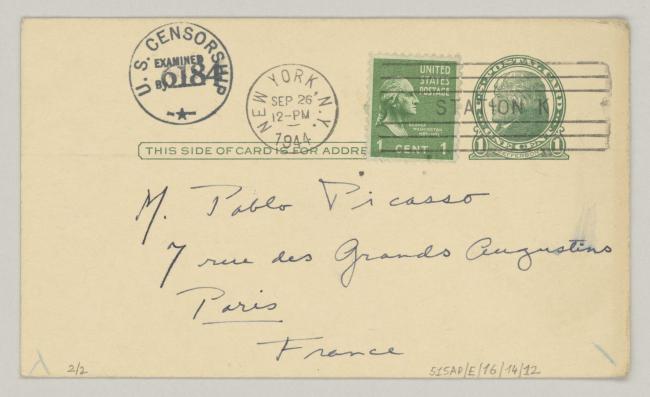 U. S. CENSORSHIP
EXAMINED
BY 6184
NEW YORK, N.Y.
SEP 26
12-PM
1944
UNITED
STATES
POSTAGE
1 CENT 1
STATION K
U.S. POSTAL CARD
1 JEFFERSON 1
THIS SIDE OF CARD IS FOR ADDRE
M. Pablo Picasso
7 rue des Grands Augustins
Paris
France
2/2
515AP/E/16/14/12